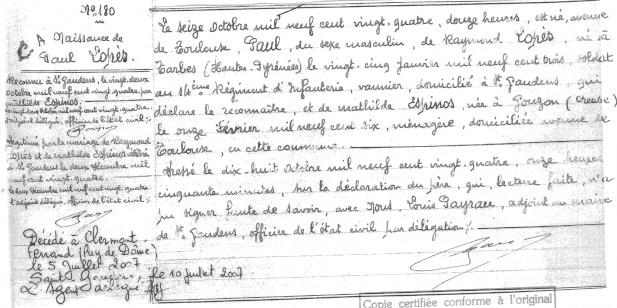 N° 180
Naissance de
Paul Lopès
Reconnu à St Gaudens, le vingt-deux
octobre mil neuf cent vingt-quatre, par
Mathilde Espinos.
officier de l'état civil
Légitimé par le mariage de Raymond
Lopès et de Mathilde Espinos célébré
à St Gaudens le deux décembre mil
neuf cent vingt-quatre.
Le deux décembre mil neuf cent vingt-quatre
L'adjoint délégué, officier de l'état civil
Décédé à Clermont
Ferrand (Puy de Dôme)
le 5 Juillet 2007
Saint Gaudens, le 10 juillet 2007
L'Agent
Le seize octobre mil neuf cent vingt-quatre, douze heures, est né, avenue
de Toulouse, Paul, du sexe masculin, de Raymond Lopès, né à
Tarbes (Hautes-Pyrénées) le vingt-cinq janvier mil neuf cent trois, soldat
au 14ème Régiment d'Infanterie, vannier, domicilié à St Gaudens, qui
déclare le reconnaître, et de Mathilde Espinos, née à Gouzon (Creuse)
le onze février mil neuf cent six, ménagère, domiciliée avenue de
Toulouse, en cette commune.
Dressé le dix-huit octobre mil neuf cent vingt-quatre, onze heures
cinquante minutes, sur la déclaration du père, qui, lecture faite, n'a
pu signer faute de savoir, avec Nous, Louis Payrau, adjoint au maire
de St Gaudens, officier de l'état civil par délégation
Copie certifiée conforme à l'original